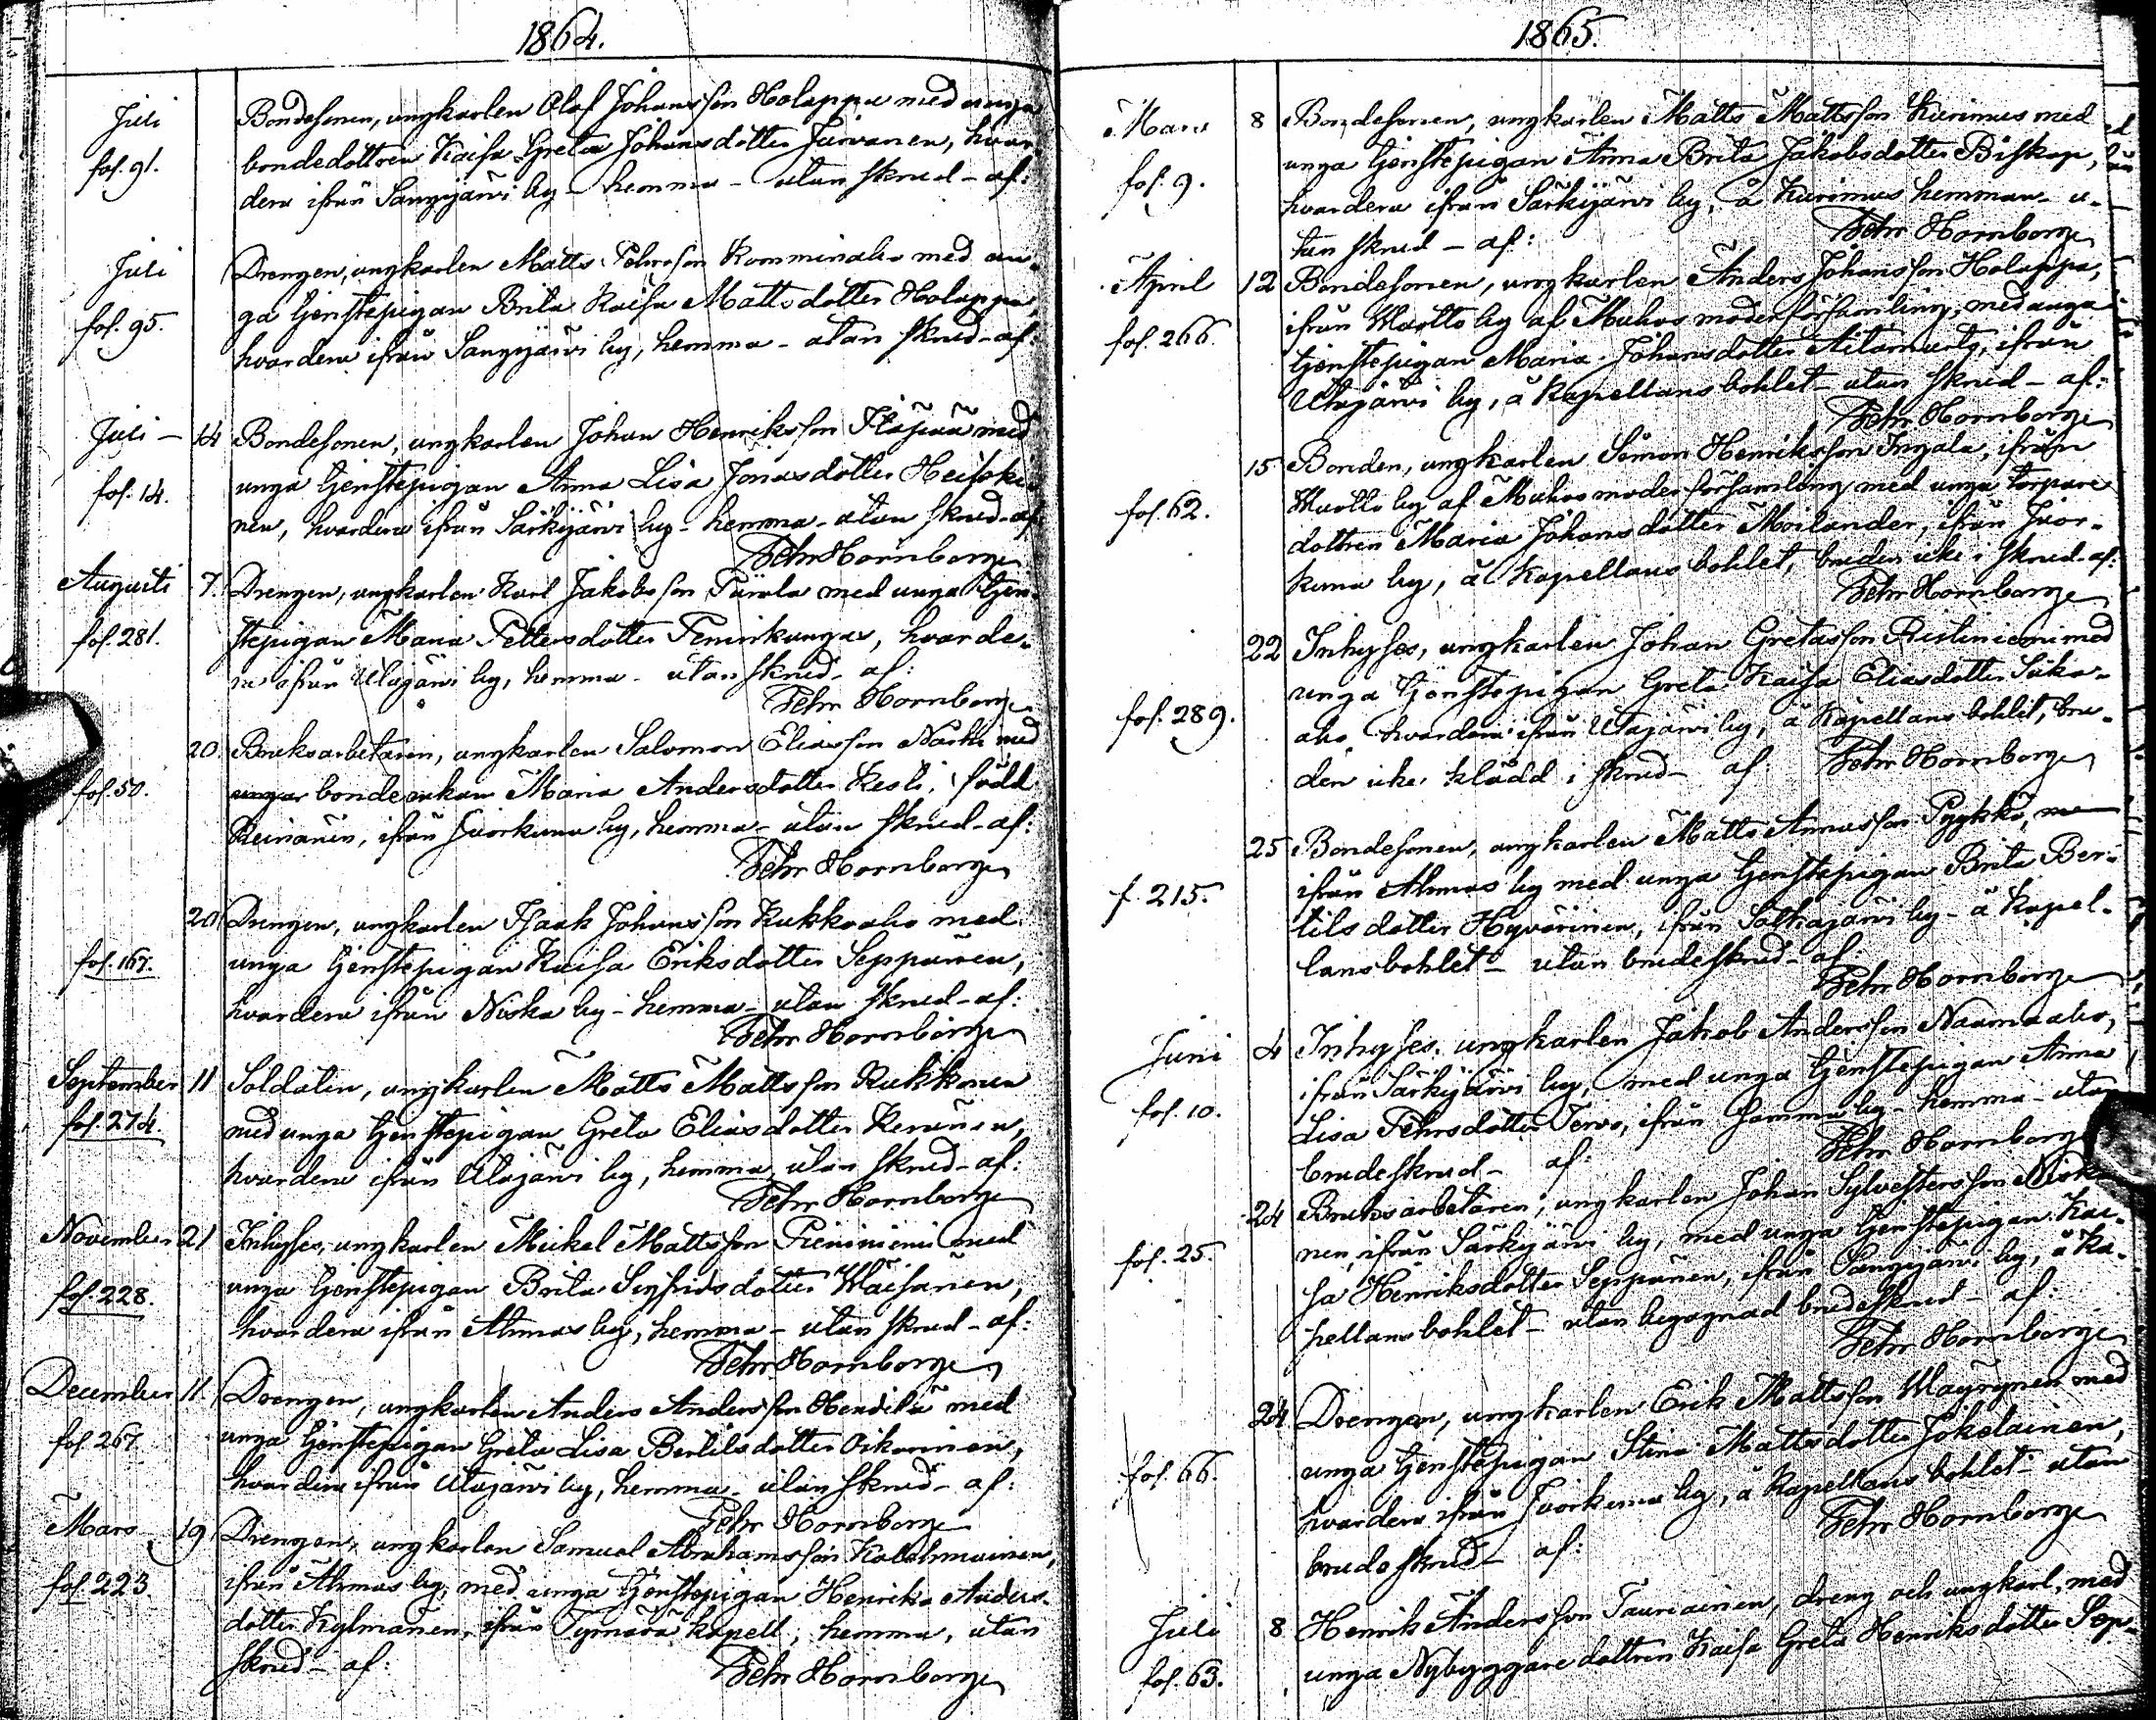 1864.
Juli Bondesonen, ungkarlen Olof Johansson Holappa med unga
fol. 91. bondedottren Kaisa Greta Johansdotter Juvanen, hvar-
dera ifrån Sangijärvi by - hemma - utan skrud - af:
Juli Drengen, ungkarlen Matts Pehrsson Komminaho med un-
fol. 95. ga tjenstepigan Brita Kaisa Mattsdotter Holappa,
hvardera ifrån Sangijärvi by, hemma - utan skrud - af:
Juli - 14 Bondesonen, ungkarlen Johan Henriksson med
fol. 14. unga tjenstepigan Anna Lisa Jonasdotter Heiski-
nen, hvardera ifrån Särkijärvi by - hemma - utan skrud - af:
Pehr Hornborg
Augusti 7. Drengen, ungkarlen Karl Jakobsson med unga tjen-
fol. 281. stepigan Maria Pettersdotter hvarde-
ra ifrån Utajärvi by, hemma - utan skrud - af:
Pehr Hornborg
20. Bruksarbetaren, ungkarlen Salomon Eliasson med
fol. 50. bondeenkan Maria Andersdotter Kesti, född
ifrån Juorkuna by, hemma - utan skrud - af:
Pehr Hornborg
20 Drengen, ungkarlen Isaak Johansson Kukkoaho med
fol. 167. unga tjenstepigan Kaisa Eriksdotter Seppänen,
hvardera ifrån Niska by - hemma - utan skrud - af:
Pehr Hornborg
September 11 Soldaten, ungkarlen Matts Mattsson Kukkonen
fol. 274. med unga tjenstepigan Greta Eliasdotter Keränen,
hvardera ifrån Utajärvi by, hemma, utan skrud - af:
Pehr Hornborg
November 21 Inhyses, ungkarlen Mickel Mattsson Pieniniemi med
fol. 228. unga tjenstepigan Brita Sigfridsdotter Wäisänen,
hvardera ifrån Ahmas by, hemma - utan skrud - af:
Pehr Hornborg
December 11. Drengen, ungkarlen Anders Andersson Heikilä med
fol. 267 unga tjenstepigan Greta Lisa Bertilsdotter Oikarinen,
hvardera ifrån Utajärvi by, hemma - utan skrud - af:
Pehr Hornborg
Mars 19 Drengen, ungkarlen Samuel Abrahamsson Kolehmainen,
fol. 223 ifrån Ahmas by, med unga tjenstepigan Henrika Anders-
dotter Kylmänen, ifrån Tyrnävä kapell, hemma, utan
skrud - af:
Pehr Hornborg
1865.
Mars 8 Bondesonen, ungkarlen Matts Mattsson Kurimus med
fol. 9. unga tjenstepigan Anna Brita Jakobsdotter Biskop,
hvardera ifrån Särkijärvi by, å Kurimus hemman - u-
tan skrud - af:
Pehr Hornborg
April 12 Bondesonen, ungkarlen Anders Johansson Holappa,
fol. 266. ifrån Muotto by af Muhos moderförsamling, med unga
tjenstepigan Maria Johansdotter Aitamurto, ifrån
Utajärvi by, å Kapellansbohlet - utan skrud - af:
Pehr Hornborg
15 Bonden, ungkarlen Simon Henriksson Ingala, ifrån
fol. 62. Muotto by af Muhos moderförsamling med unga torpare
dottren Maria Johansdotter Moilander, ifrån Juor-
kuna by, å Kapellansbohlet, bruden icke i skrud - af:
Pehr Hornborg
22 Inhyses, ungkarlen Johan Gretasson Ristiniemi med
fol. 289. unga tjenstepigan Greta Kaisa Eliasdotter
aho hvardera ifrån Utajärvi by, å Kapellansbohlet, bru-
den icke klädd i skrud - af: Pehr Hornborg
25 Bondesonen, ungkarlen Matts Annasson Pyykkö,
f. 215. ifrån Ahmas by med unga tjenstepigan Brita Ber-
tilsdotter Hyvärinen, ifrån Sotkajärvi by - å Kapel-
lansbohlet - utan brudeskrud - af
Pehr Hornborg
Juni 4 Inhyses, ungkarlen Jakob Andersson Naamaaho,
fol. 10. ifrån Särkijärvi by, med unga tjenstepigan Anna
Lisa Pehrsdotter Tervo, ifrån by - hemma - utan
brudeskrud - af:
Pehr Hornborg
24 Bruksarbetaren, ungkarlen Johan Sylvestersson
fol. 25. nen, ifrån Särkijärvi by, med unga tjenstepigan Kai-
sa Henriksdotter Seppänen, ifrån Sangijärvi by, å Ka-
pellansbohlet - utan begagnad brudeskrud - af:
Pehr Hornborg
24 Drengen, ungkarlen Erik Mattsson Wäyrynen med
fol. 66. unga tjenstepigan Stina Mattsdotter Jokelainen,
hvardera ifrån Juorkuna by, å Kapellansbohlet - utan
brudeskrud - af:
Pehr Hornborg
Juli 8 Henrik Andersson Tauriainen, dreng och ungkarl, med
fol. 63. unga Nybyggaredottren Kaisa Greta Henriksdotter Sep-